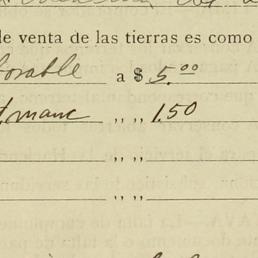 de venta de las tierras es como
orable a $ 5.00
t. manc „ „ 1.50
„ „
„ „